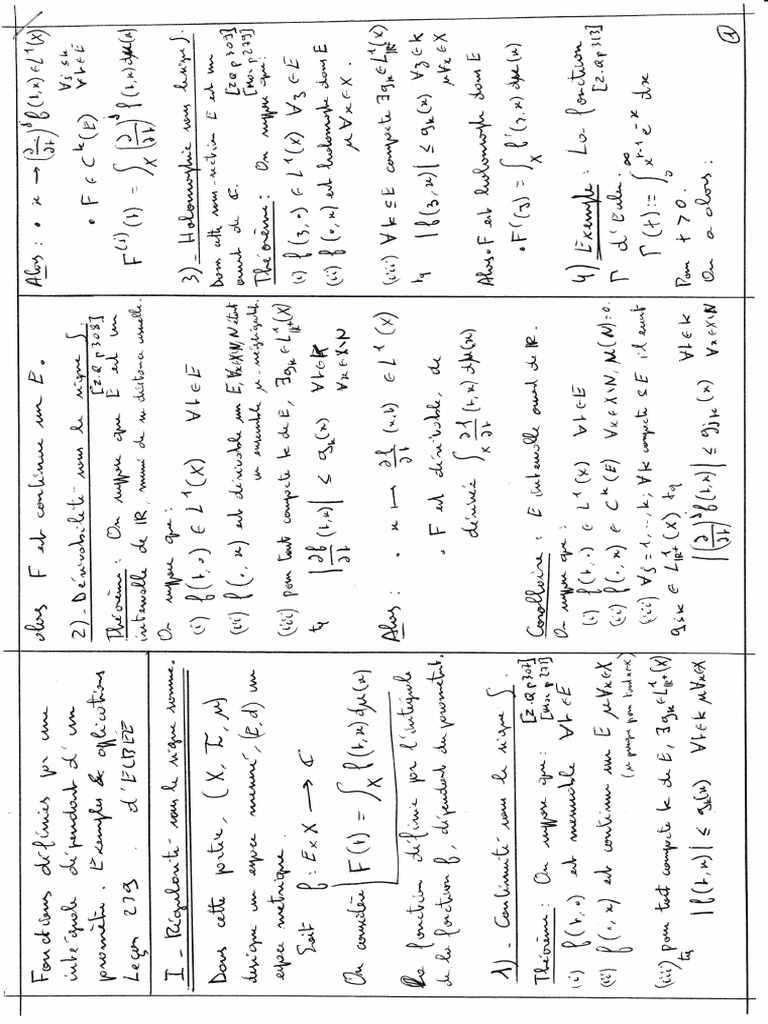 Fonctions définies par une
intégrale dépendant d'un
paramètre. Exemples & applications
Leçon 239. d'ELBEE
I - Régularité sous le signe somme.
Dans cette partie, (X, Σ, μ)
désigne un espace mesuré, (E, d) un
espace métrique.
Soit f : E × X → ℂ
On considère F(t) = ∫_X f(t,x) dμ(x)
La fonction définie par l'intégrale
de la fonction f, dépendant du paramètre t.
1) - Continuité sous le signe ∫.
Théorème : On suppose que : [Z.Q p307] [Mac p271]
(i) f(t, ∘) est mesurable ∀t ∈ E
(ii) f(∘, x) est continue sur E μ∀x ∈ X
(μ presque pour tout x ∈ X)
(iii) pour tout compacte K de E, ∃g_K ∈ L¹_ℝ⁺(X)
tq |f(t,x)| ≤ g_K(x) ∀t ∈ K μ∀x ∈ X
alors F est continue sur E.
2) - Dérivabilité sous le signe ∫.
[Z.Q p308]
Théorème : On suppose que E est un
intervalle de ℝ, muni de sa distance usuelle.
On suppose que :
(i) f(t, ∘) ∈ L¹(X) ∀t ∈ E
(ii) f(∘, x) est dérivable sur E, ∀x ∈ X\N, N étant
un ensemble μ-négligeable.
(iii) pour tout compacte K de E, ∃g_K ∈ L¹_ℝ⁺(X)
tq |∂f/∂t (t,x)| ≤ g_K(x) ∀t ∈ K
∀x ∈ X\N
Alors : • x ↦ ∂f/∂t (x,t) ∈ L¹(X)
• F est dérivable, de
dérivée ∫_X ∂f/∂t (t,x) dμ(x)
Corollaire : E intervalle ouvert de ℝ.
On suppose que :
(i) f(t, ∘) ∈ L¹(X) ∀t ∈ E
(ii) f(∘, x) ∈ C^k(E) ∀x ∈ X\N, μ(N) = 0.
(iii) ∀j = 1, .., k ; ∀K compacte ≤ E il existe
g_jK ∈ L¹_ℝ⁺(X) tq
|(∂/∂t)^j f(t,x)| ≤ g_jK(x) ∀t ∈ K
∀x ∈ X\N
Alors : • x → (∂/∂t)^j f(t,x) ∈ L¹(X)
∀j ≤ k
∀t ∈ E
• F ∈ C^k(E)
F^(j)(t) = ∫_X (∂/∂t)^j f(t,x) dμ(x)
3) - Holomorphie sous le signe ∫.
Dans cette sous-section E est un
ouvert de ℂ. [Z.Q p309] [Mac p279]
Théorème : On suppose que :
(i) f(z, ∘) ∈ L¹(X) ∀z ∈ E
(ii) f(∘, x) est holomorphe dans E
μ∀x ∈ X.
(iii) ∀K ≤ E compacte ∃g_K ∈ L¹_ℝ⁺(X)
tq |f(z,x)| ≤ g_K(x) ∀z ∈ K
μ∀x ∈ X
Alors • F est holomorphe dans E
• F'(z) = ∫_X f'(z,x) dμ(x)
4) Exemple : La fonction
Γ d'Euler. [Z.Q p313]
Γ(t) := ∫_0^∞ x^{t-1} e^{-x} dx
Pour t > 0.
On a alors :
①